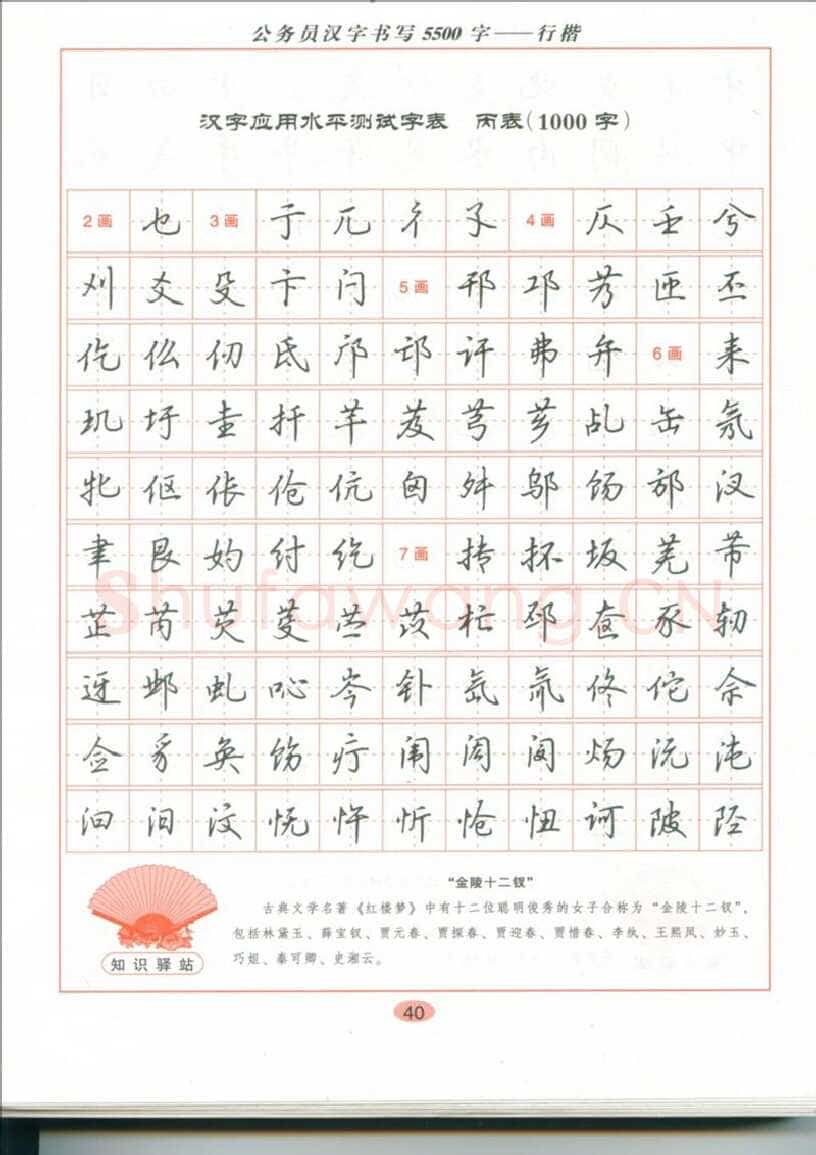 公务员汉字书写5500字——行楷
汉字应用水平测试字表 丙表(1000字)
2画 乜 3画 亍 兀 彳 孑 4画 仄 壬 兮
刈 爻 殳 卞 闩 5画 邗 邛 艿 匝 丕
仡 仫 仞 氐 邝 邙 讦 弗 弁 6画 耒
玑 圩 圭 扦 芊 芨 芎 芗 乩 缶 氖
牝 伛 伥 伧 伉 囟 舛 邬 饧 邡 汊
聿 艮 妁 纣 纥 7画 抟 抔 坂 芜 芾
芷 芮 芡 芟 杧 邳 奁 豕 轫
迓 邺 虬 吣 岑 钋 氙 氚 佟 佗 佘
佥 豸 奂 饬 疔 闱 闳 闵 炀 沅 沌
汩 汨 汶 怃 忤 忻 怆 忸 诃 陂 陉
Shufawang.CN
“金陵十二钗”
古典文学名著《红楼梦》中有十二位聪明俊秀的女子合称为“金陵十二钗”,
包括林黛玉、薛宝钗、贾元春、贾探春、贾迎春、贾惜春、李纨、王熙凤、妙玉、
巧姐、秦可卿、史湘云。
知识驿站
40